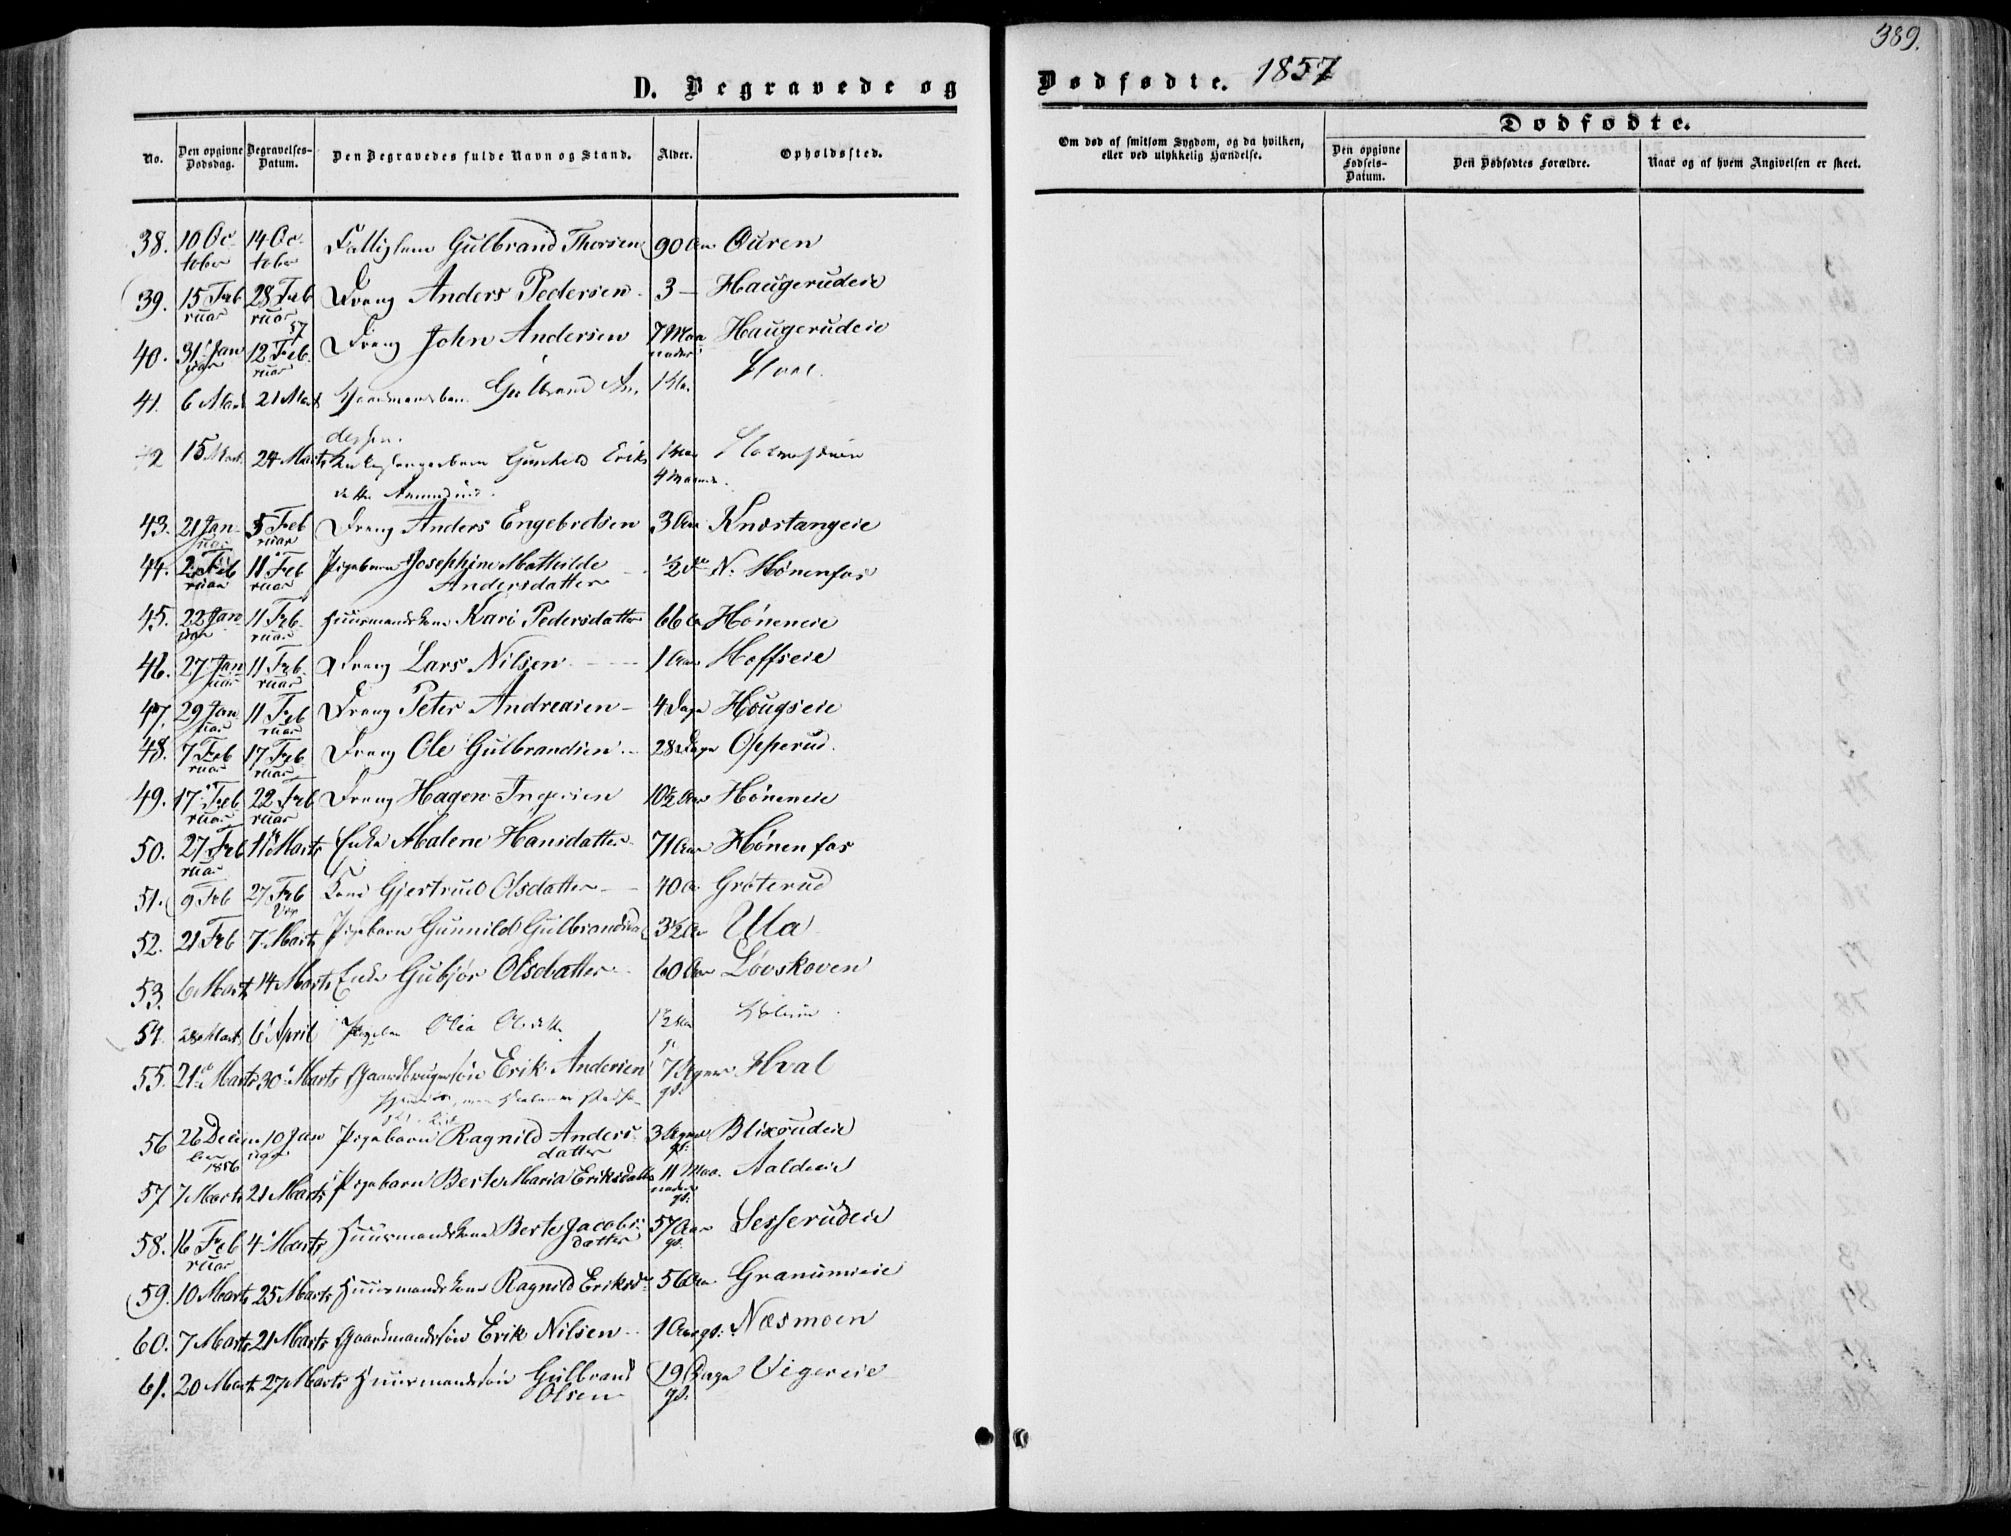 389.
D. Begravede og Dødfødte. 1857
No.
Den opgivne Dødsdag.
Begravelses-Datum.
Den Begravedes fulde Navn og Stand.
Alder.
Opholdssted.
Om død af smitsom Sygdom, og da hvilken, eller ved ulykkelig Hændelse.
Dødfødte.
Den opgivne Fødsels-Datum.
Den Dødfødtes Forældre.
Naar og af hvem Angivelsen er skeet.
38. 10 October 14 October Fattiglem Gulbrand Thorsen 90 Aar Øuren
39. 15 Februar 28 Februar Dreng Anders Pedersen 3 — Haugerudeie
40. 31 Januar 57 12 Februar Dreng John Andersen 7 Maaneder Haugerudeie
41. 6 Marts 21 Marts Gaardmandsbarn Gulbrand Andersen 1 Aar Hval.
42 15 Marts 24 Marts Gunhild Eriksdatter 1 Aar 4 Maaneder
43. 21 Januar 5 Februar Dreng Anders Engebretsen 3 Aar Knæstangeie
44. 2 Februar 11 Februar Pigebarn Josephine Mathilde Andersdatter ½ Aar N. Hønenfos
45. 22 Januar 11 Februar Huusmandskone Kari Pedersdatter 66 Aar Høneneie
46. 27 Januar 11 Februar Dreng Lars Nilsen 1 Aar Hoffseie
47. 29 Januar 11 Februar Dreng Peter Andreasen 4 Dage Hougseie
48. 7 Februar 17 Februar Dreng Ole Gulbrandsen 28 Dage Opperud.
49. 17 Februar 22 Februar Dreng Hagen Ingersen 10½ Aar Høneneie
50. 27 Februar 11 Marts Enke Malene Hansdatter 71 Aar Hønenfos
51. 9 Feb 27 Feb Kone Gjertrud Olsdatter 40 Aar Grøterud
52. 21 Feb 7 Marts Pigebarn Gunnild Gulbrandsd. 3½ Aar Ula
53. 6 Marts 14 Marts Enke Gubjør Olsdatter 60 Aar Løvskoven
54. 28 Marts 6 April Pigebarn Olea Olsdatter ½ Aar
55. 21 Marts 30 Marts Gaardbrugersøn Erik Andersen 7 Uger gl. Hval
56 26 December 1856 10 Januar Pigebarn Ragnild Andersdatter 3 Uger gl. Blixrudeie
57 7 Marts 21 Marts Pigebarn Berte Maria Eriksdatter 11 Maaneder gl. Aaldeeie
58. 16 Februar 4 Marts Huusmandskone Berte Jacobsdatter 57 Aar gl. Lesserudeie
59. 10 Marts 25 Marts Huusmandskone Ragnild Eriksd. 56 Aar Granumeie
60. 7 Marts 21 Marts Gaardmandssøn Erik Nilsen 1 Aar gl. Næsmoen
61. 20 Marts 27 Marts Huusmandssøn Gulbrand Olsen 19 Dage gl. Vigereie